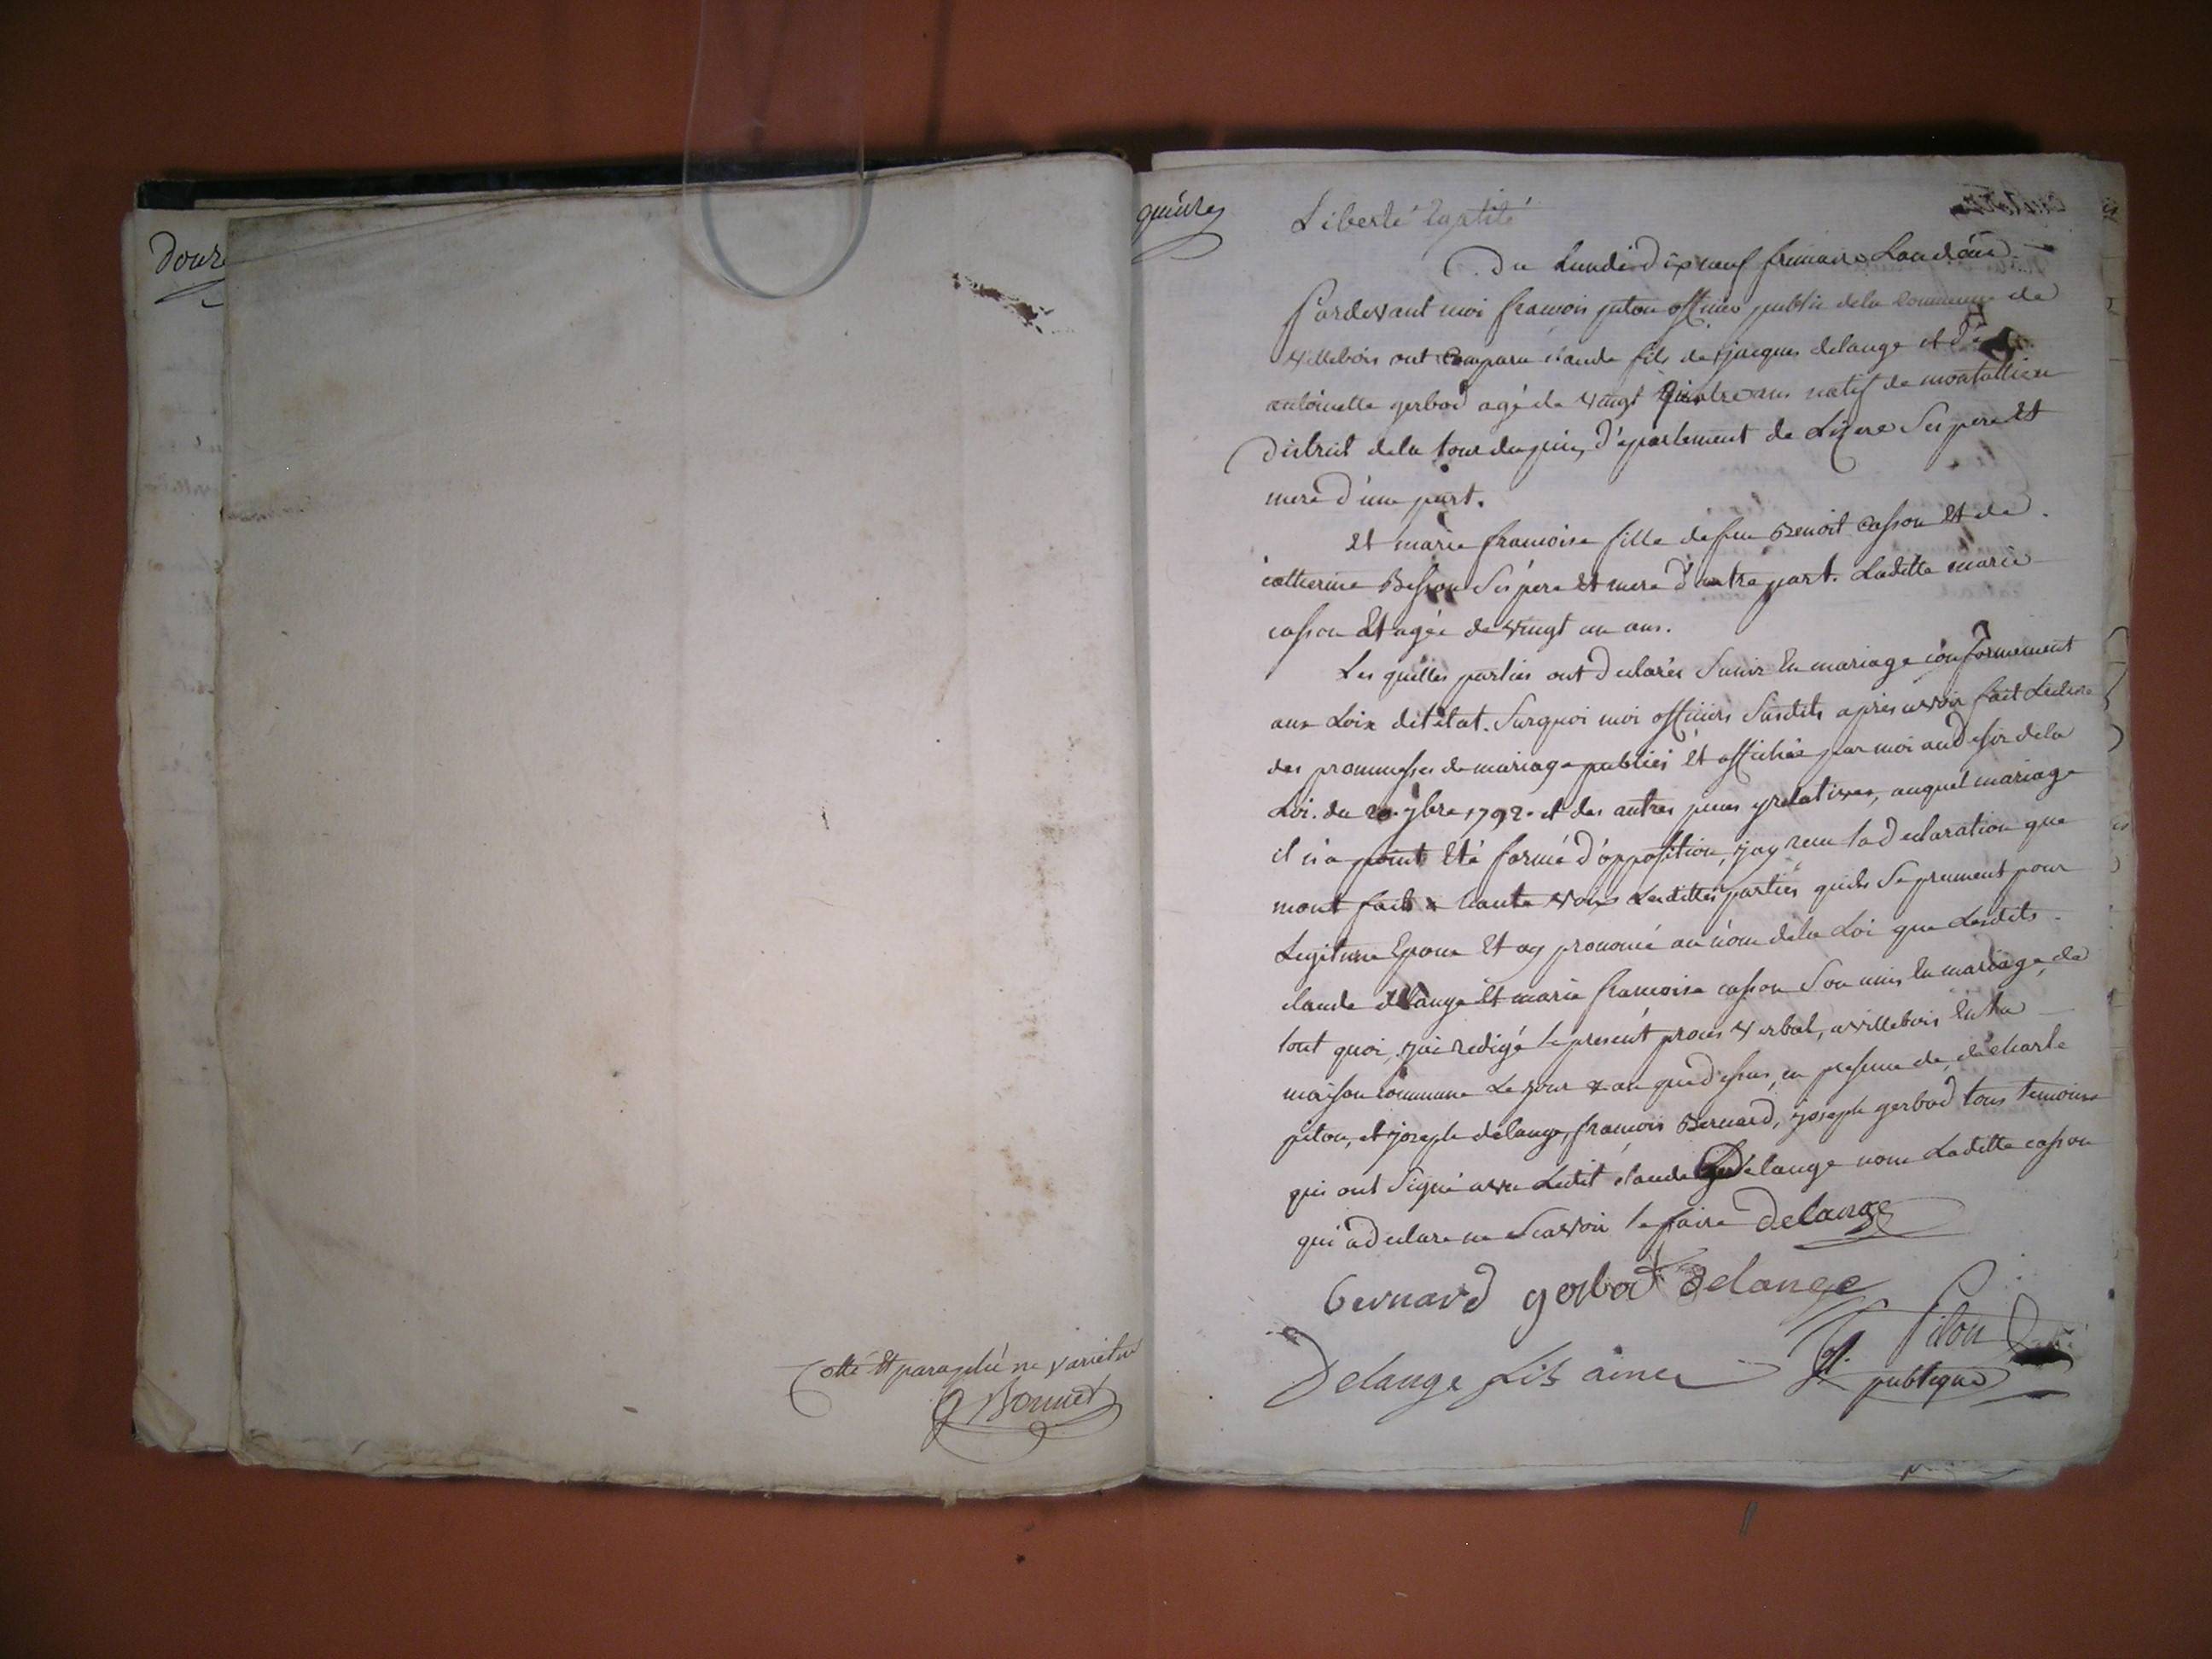 Douze
Cotté Et paraphé ne varietur
Bonnet
quinze
Liberté Egalité
Du Lundi dix neuf frimaire Lan deux
Pardevant moi francois piton officier public dela Commune de
Villebois ont comparu claude fils de jacques delange et d'
antoinette gerbod agé de vingt quatre ans natif de montallieu
District dela tour dupin, d'epartement de Lizere Ses pere Et
mere d'une part.
Et marie francoise fille de feu Benoit casson Et de
catherine Besson Ses pere Et mere d'autre part. Laditte marie
casson Et agée de vingt un ans.
Les quelles parties ont declarés Sunir En mariage conformement
aux Loix de létat. Surquoi moi officiers Susdits apres avoir fait Lecture
des prommesses de mariage publiés Et affichée par moi au desir dela
Loi. du 20. 7bre 1792. et des autres pieces y relatives, auquel mariage
il n'a point Eté formé d'opposition, jay recu la declaration que
mont fait a haute voix Lesdittes parties quils Se prennent pour
Legitime Epoux Et ay prononcé au nom dela Loi que Lesdits
claude delange Et marie francoise casson Son unis En mariage, de
tout quoi, jai redigé le present procès verbal, a villebois En la
maison commune Le jour & an que dessus, en presence de, de charle
piton, et joseph delange, francois Bernard, joseph gerbod tous temoins
qui ont Signé avec Ledit claude Delange non Laditte casson
qui a declare ne Scavoir le faire Delange
bernard gerbod delange
Delange fils ainé
Piton
publique